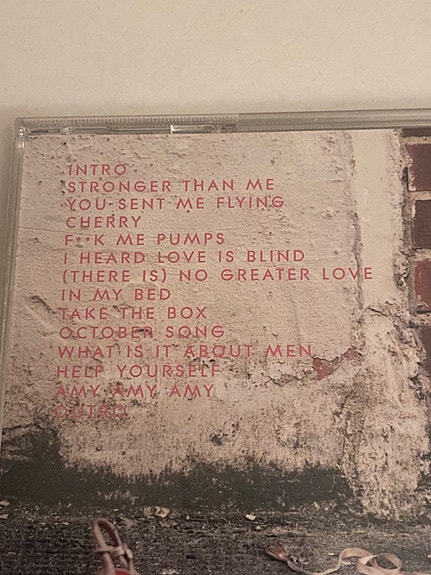 INTRO
STRONGER THAN ME
YOU SENT ME FLYING
CHERRY
F**K ME PUMPS
I HEARD LOVE IS BLIND
(THERE IS) NO GREATER LOVE
IN MY BED
TAKE THE BOX
OCTOBER SONG
WHAT IS IT ABOUT MEN
HELP YOURSELF
AMY AMY AMY
OUTRO